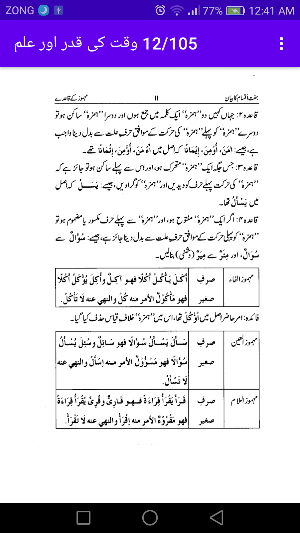 ZONG 77% 12:41 AM
12/105 وقت کی قدر اور علم
ہفت اقسام کا بیان ۱۱ مہموز کے قاعدے
قاعدہ۲: جہاں کہیں دو "ہمزہ" ایک کلمہ میں جمع ہوں اور دوسرا "ہمزہ" ساکن ہو تو
دوسرے "ہمزہ" کو پہلے "ہمزہ" کی حرکت کے موافق حرف علت سے بدل دینا واجب
ہے، جیسے: اٰمَنَ، اُوْمِنَ، اِیْمَانًا کہ اصل میں أَءْمَنَ، أُؤْمِنَ، إِئْمَانًا تھے۔
قاعدہ۳: جس جگہ ایک "ہمزہ" متحرک ہو، اور اس سے پہلے ساکن ہو تو جائز ہے کہ
"ہمزہ" کی حرکت پہلے حرف کو دیدیں اور "ہمزہ" کو گرا دیں، جیسے: یَسَلُ کہ اصل
میں یَسْأَلُ تھا۔
قاعدہ۴: اگر ایک "ہمزہ" مفتوح ہو، اور "ہمزہ" سے پہلے حرف مکسور یا مضموم ہو تو
"ہمزہ" کو پہلے حرف کی حرکت کے موافق حرف علت سے بدل دینا جائز ہے، جیسے: سُؤَالٌ سے
سُوَالٌ، اور مِئَرٌ سے مِیَرٌ (دشمنی) بنا لیں۔
مہموز الفاء صرف أَکَلَ یَأْکُلُ أَکْلًا فهو اٰکِلٌ وأُکِلَ یُؤْکَلُ أَکْلًا
صغیر فهو مَأْکُوْلٌ الأمر منه کُلْ والنهي عنه لَا تَأْکُلْ.
فائدہ: امر حاضر اصل میں اُؤْکُلْ تھا، اس میں "ہمزہ" خلاف قیاس حذف کیا گیا۔
مہموز العین صرف سَأَلَ یَسْأَلُ سُؤَالًا فهو سَائِلٌ وسُئِلَ یُسْأَلُ
صغیر سُؤَالًا فهو مَسْؤُوْلٌ الأمر منه اِسْأَلْ والنهي عنه
لَا تَسْأَلْ.
مہموز اللام صرف قَرَأَ یَقْرَأُ قِرَاءَةً فهو قَارِئٌ وقُرِئَ یُقْرَأُ قِرَاءَةً
صغیر فهو مَقْرُوْءٌ الأمر منه اِقْرَأْ والنهي عنه لَا تَقْرَأْ.